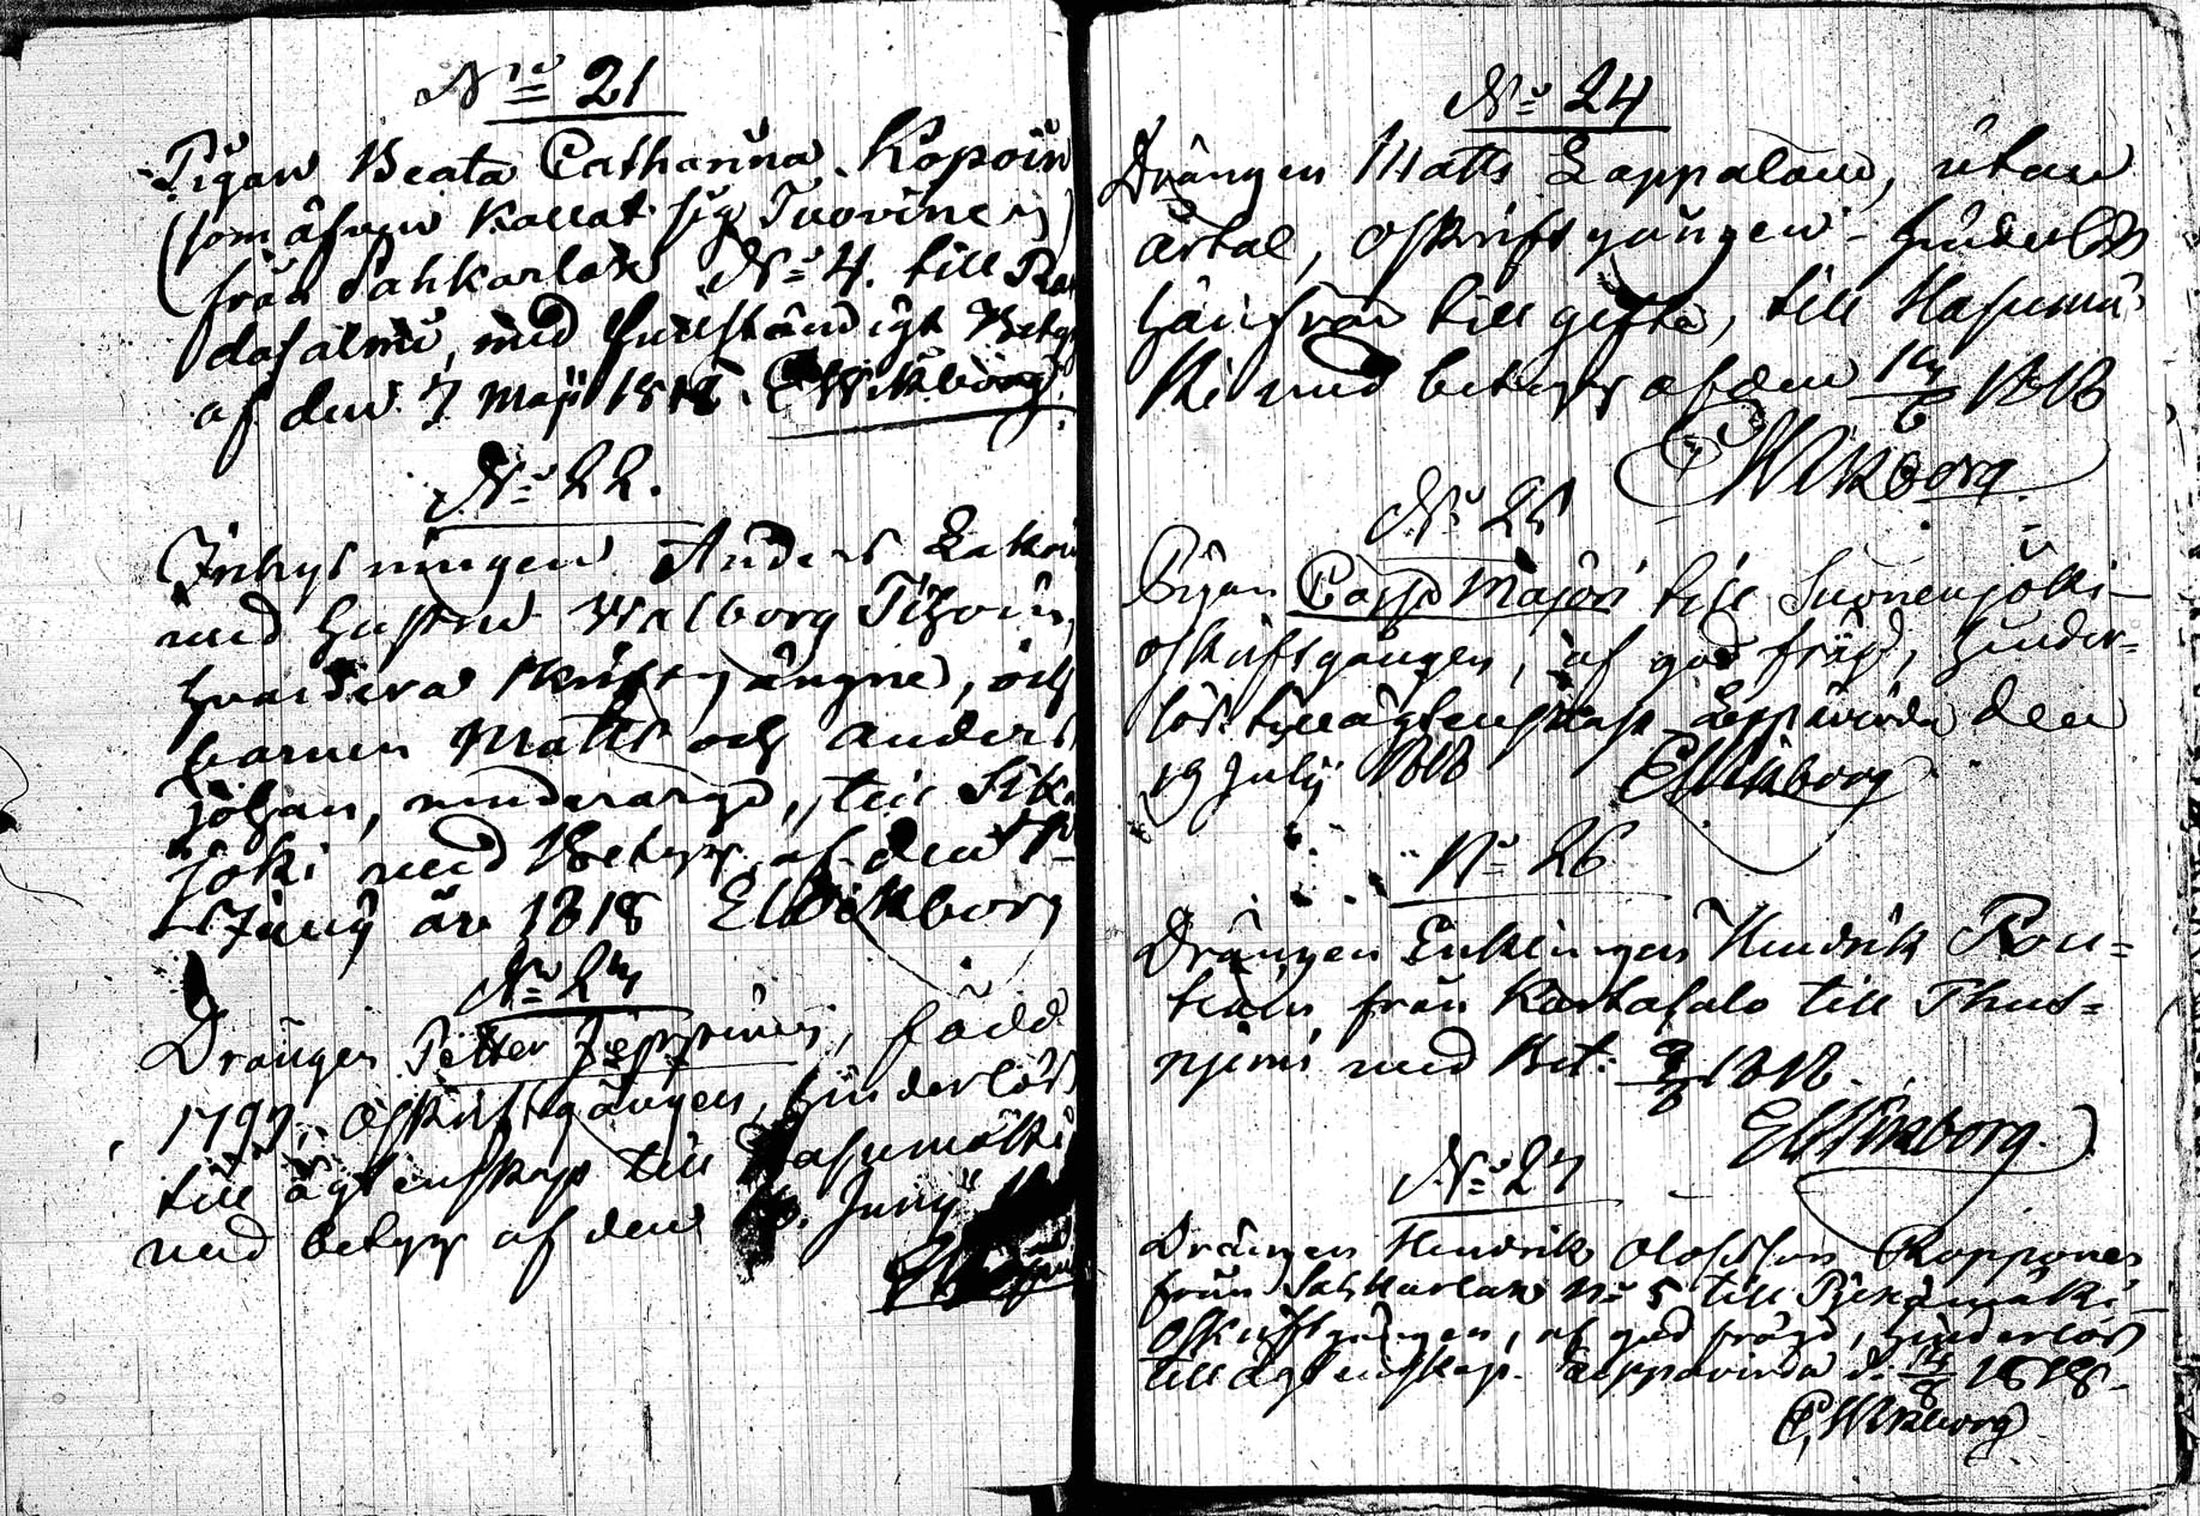 N:o 21
Pigan Beata Catharina Kopoin
(som äfven kallat sig Tuovinen)
från Sahkarlax N:o 4. till Ran
dasalmi, med fullständigt Betyg
af den 7 Maji 1818. E Wikborg
N:o 22.
Inhysningen Anders Lakoin
med hustru Walborg Tihoin,
hvardera skriftgångne, och
barnen Matts och Anders
Johan, minderårge, till Siika
joki med Betyg af den
Junij år 1818 E Wikborg
N:o 23
Drängen Petter Jeppinen, född
1799, oskriftgången, hinderlös
till ägtenskap till Hasumäki
med betyg af den Junij
N:o 24
Drängen Matts Lappalain, utan
årtal, oskriftgången - hinderlös
härifrån till gifte, till Hasumä
ki med betyg af den 14/6 1818
E Wikborg
N:o 25
Pigan Caisa Majori till Suonenjoki -
oskriftgången, af god frägd, hinder=
lös till ägtenskap Leppävirda den
19 July 1818 E Wikborg
N:o 26
Drängen Enklingen Hendrik Rou=
tiain från Kortasalo till Thus=
njemi med Bet: 1818.
E Wikborg.
N:o 27
Drängen Hendrik Olofsson Ropponen
från Sahkarlax N:o 5 till Pjexämäki
oskriftgången, af god frägd, hinderlös
till ägtenskap. Leppävirda d. 14/8 1818.
E, Wikborg